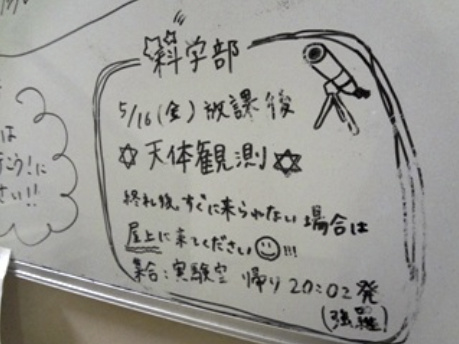 科学部
5/16(金) 放課後
☆天体観測☆
終礼後、すぐに来られない場合は
屋上に来てください☺!!!
集合:実験室 帰り 20:02発
は
行こう!に
さい!!